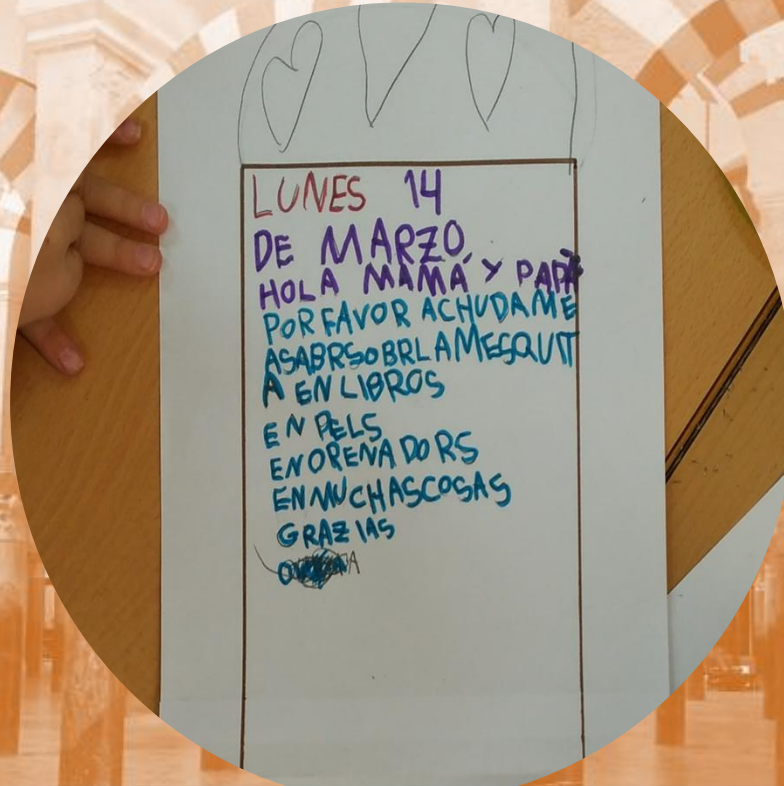 LUNES 14
DE MARZO.
HOLA MAMÁ Y PAPÁ
POR FAVOR ACHUDAME
ASABRSOBRLAMESQUIT
A EN LIBROS
EN PELS
ENORENADORS
ENMUCHASCOSAS
GRAZIAS